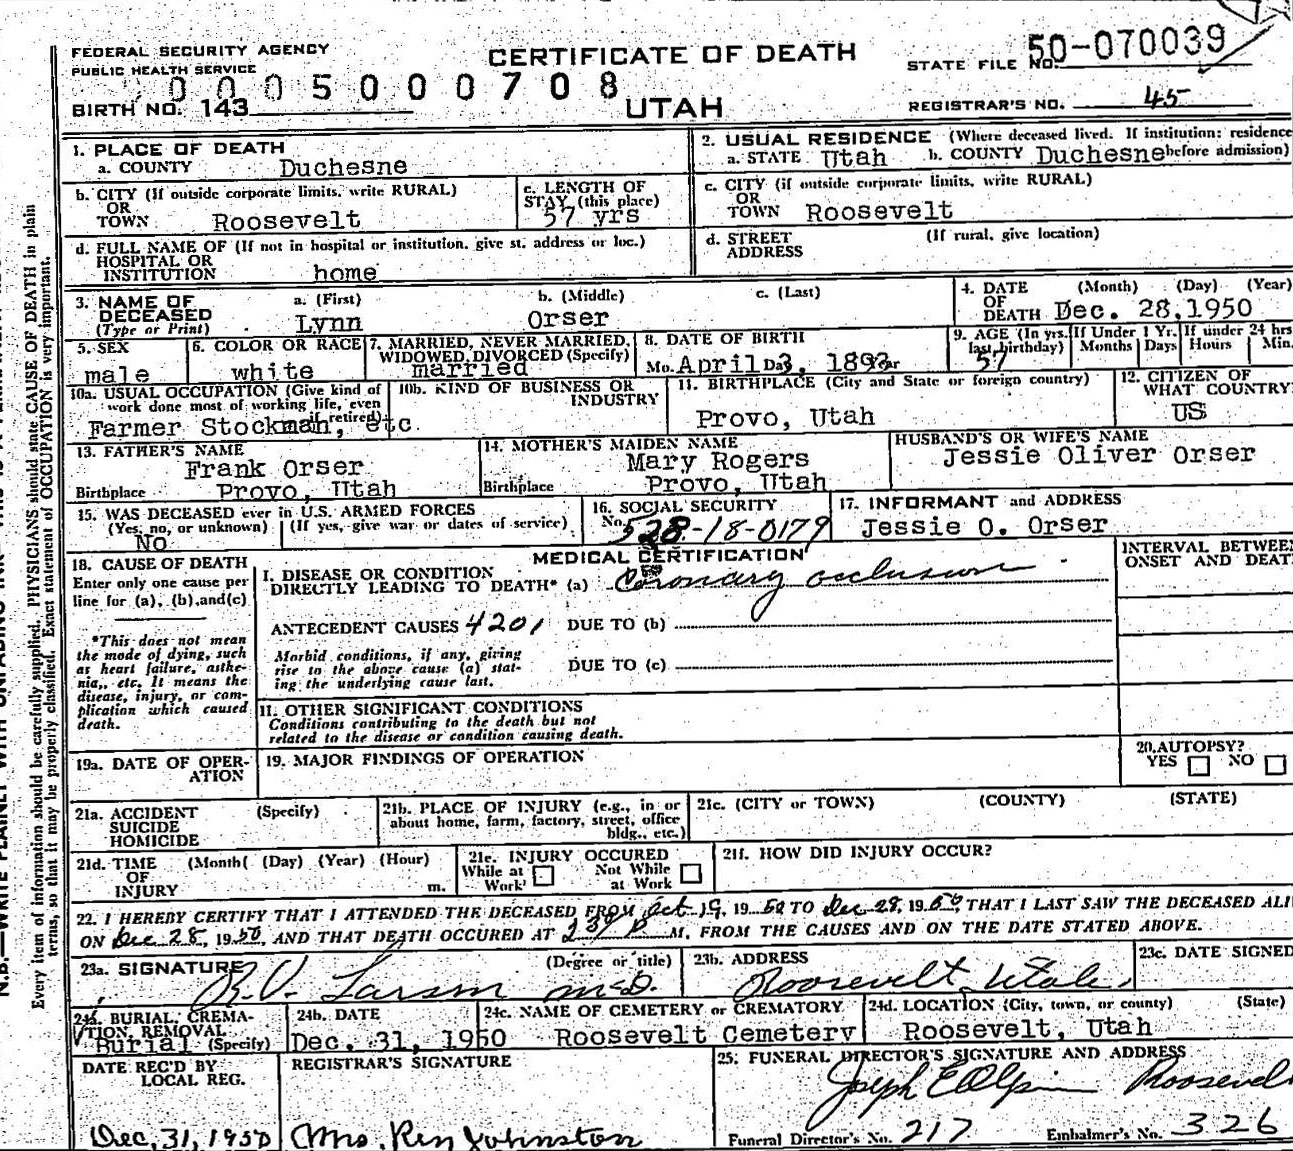 FEDERAL SECURITY AGENCY
PUBLIC HEALTH SERVICE
CERTIFICATE OF DEATH
STATE FILE NO. 50-070039
0005000708
BIRTH NO. 143
UTAH
REGISTRAR'S NO. 45
1. PLACE OF DEATH
a. COUNTY Duchesne
2. USUAL RESIDENCE (Where deceased lived. If institution: residence before admission)
a. STATE Utah b. COUNTY Duchesne
b. CITY (If outside corporate limits, write RURAL)
OR
TOWN Roosevelt
c. LENGTH OF
STAY (this place)
57 yrs
c. CITY (if outside corporate limits, write RURAL)
OR
TOWN Roosevelt
d. FULL NAME OF (If not in hospital or institution, give st. address or loc.)
HOSPITAL OR
INSTITUTION home
d. STREET (If rural, give location)
ADDRESS
3. NAME OF
DECEASED
(Type or Print)
a. (First) b. (Middle) c. (Last)
Lynn Orser
4. DATE (Month) (Day) (Year)
OF
DEATH Dec. 28, 1950
5. SEX
male
6. COLOR OR RACE
white
7. MARRIED, NEVER MARRIED,
WIDOWED, DIVORCED (Specify)
married
8. DATE OF BIRTH
Mo. April Da. 3, 1893
9. AGE (In yrs. last birthday) 57
If Under 1 Yr. Months Days
If under 24 hrs Hours Min.
10a. USUAL OCCUPATION (Give kind of
work done most of working life, even
if retired)
Farmer Stockman, etc.
10b. KIND OF BUSINESS OR
INDUSTRY
11. BIRTHPLACE (City and State or foreign country)
Provo, Utah
12. CITIZEN OF
WHAT COUNTRY
US
13. FATHER'S NAME
Frank Orser
Birthplace Provo, Utah
14. MOTHER'S MAIDEN NAME
Mary Rogers
Birthplace Provo, Utah
HUSBAND'S OR WIFE'S NAME
Jessie Oliver Orser
15. WAS DECEASED ever in U.S. ARMED FORCES
(Yes, no, or unknown) (If yes, give war or dates of service)
No
16. SOCIAL SECURITY
No. 528-18-0179
17. INFORMANT and ADDRESS
Jessie O. Orser
MEDICAL CERTIFICATION
INTERVAL BETWEEN
ONSET AND DEATH
18. CAUSE OF DEATH
Enter only one cause per
line for (a), (b), and (c)
*This does not mean
the mode of dying, such
as heart failure, asthe-
nia, etc. It means the
disease, injury, or com-
plication which caused
death.
I. DISEASE OR CONDITION
DIRECTLY LEADING TO DEATH* (a) Coronary occlusion
ANTECEDENT CAUSES 4201 DUE TO (b)
Morbid conditions, if any, giving
rise to the above cause (a) stat-
ing the underlying cause last.
DUE TO (c)
11. OTHER SIGNIFICANT CONDITIONS
Conditions contributing to the death but not
related to the disease or condition causing death.
19a. DATE OF OPER-
ATION
19. MAJOR FINDINGS OF OPERATION
20. AUTOPSY?
YES NO
21a. ACCIDENT (Specify)
SUICIDE
HOMICIDE
21b. PLACE OF INJURY (e.g., in or
about home, farm, factory, street, office
bldg., etc.)
21c. (CITY or TOWN) (COUNTY) (STATE)
21d. TIME (Month( (Day) (Year) (Hour)
OF
INJURY m.
21e. INJURY OCCURED
While at Work Not While at Work
21f. HOW DID INJURY OCCUR?
22. I HEREBY CERTIFY THAT I ATTENDED THE DECEASED FROM Oct 19, 1950 TO Dec 28, 1950, THAT I LAST SAW THE DECEASED ALI
ON Dec 28, 1950, AND THAT DEATH OCCURED AT 230 P M, FROM THE CAUSES AND ON THE DATE STATED ABOVE.
23a. SIGNATURE (Degree or title)
R.V. Larson M.D.
23b. ADDRESS
Roosevelt, Utah
23c. DATE SIGNED
24a. BURIAL, CREMA-
TION, REMOVAL
Burial (Specify)
24b. DATE
Dec. 31, 1950
24c. NAME OF CEMETERY or CREMATORY
Roosevelt Cemetery
24d. LOCATION (City, town, or county) (State)
Roosevelt, Utah
DATE REC'D BY
LOCAL REG.
Dec. 31, 1950
REGISTRAR'S SIGNATURE
Mrs. Ren Johnston
25. FUNERAL DIRECTOR'S SIGNATURE AND ADDRESS
Joseph E Olpin Roosevel
Funeral Director's No. 217 Embalmer's No. 326
Every item of information should be carefully supplied. PHYSICIANS should state CAUSE OF DEATH in plain
terms, so that it may be properly classified. Exact statement of OCCUPATION is very important.